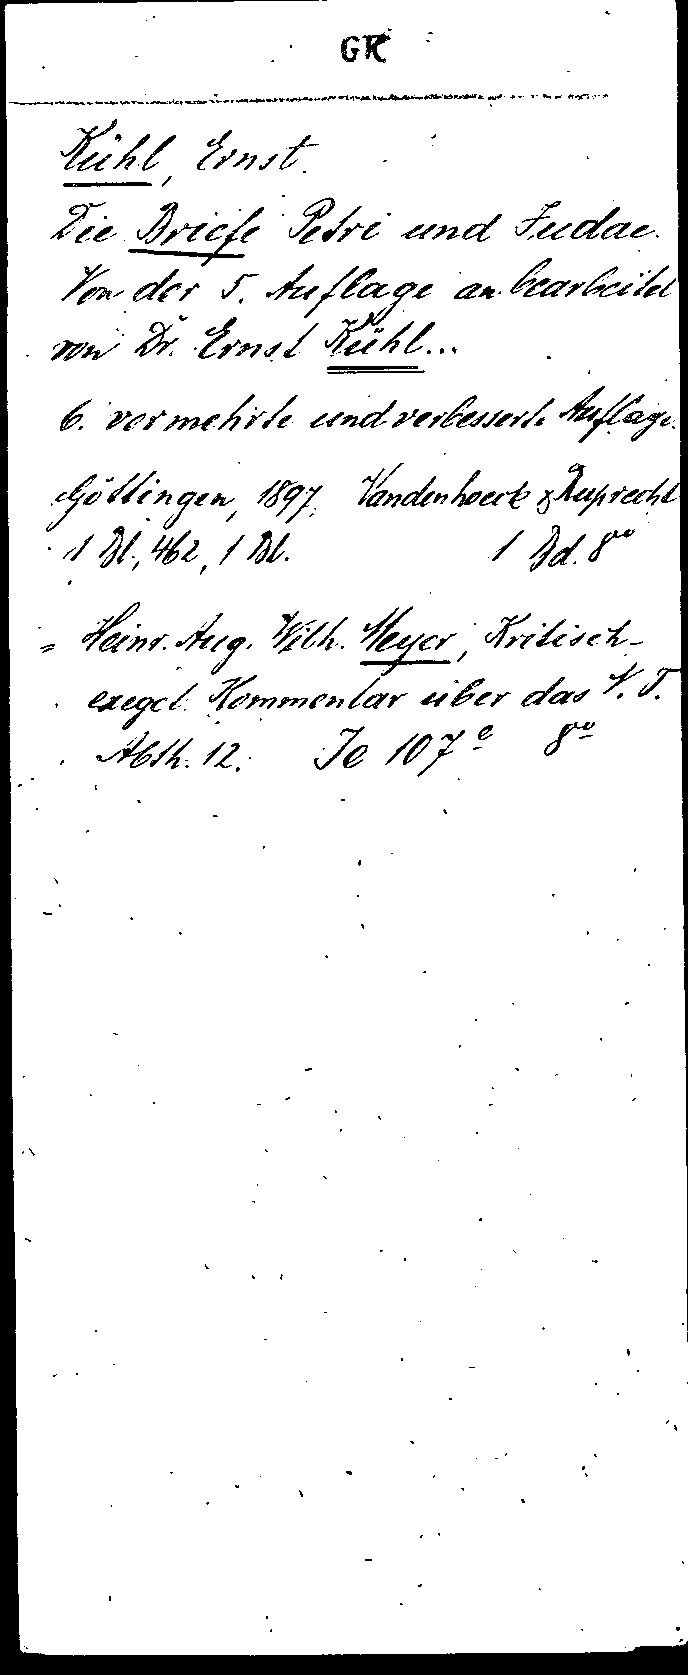 GK
Kühl, Ernst.
Die Briefe Petri und Judae.
Von der 5. Auflage an bearbeitet
von Dr. Ernst Kühl...
6. vermehrte und verbesserte Auflage.
Göttingen, 1897, Vandenhoeck & Ruprecht
1 Bl., 462, 1 Bl. 1 Bd. 8vo
= Heinr. Aug. Wilh. Meyer, Kritisch-
exeget. Kommentar über das N. T.
Abth. 12. Je 107e 8vo